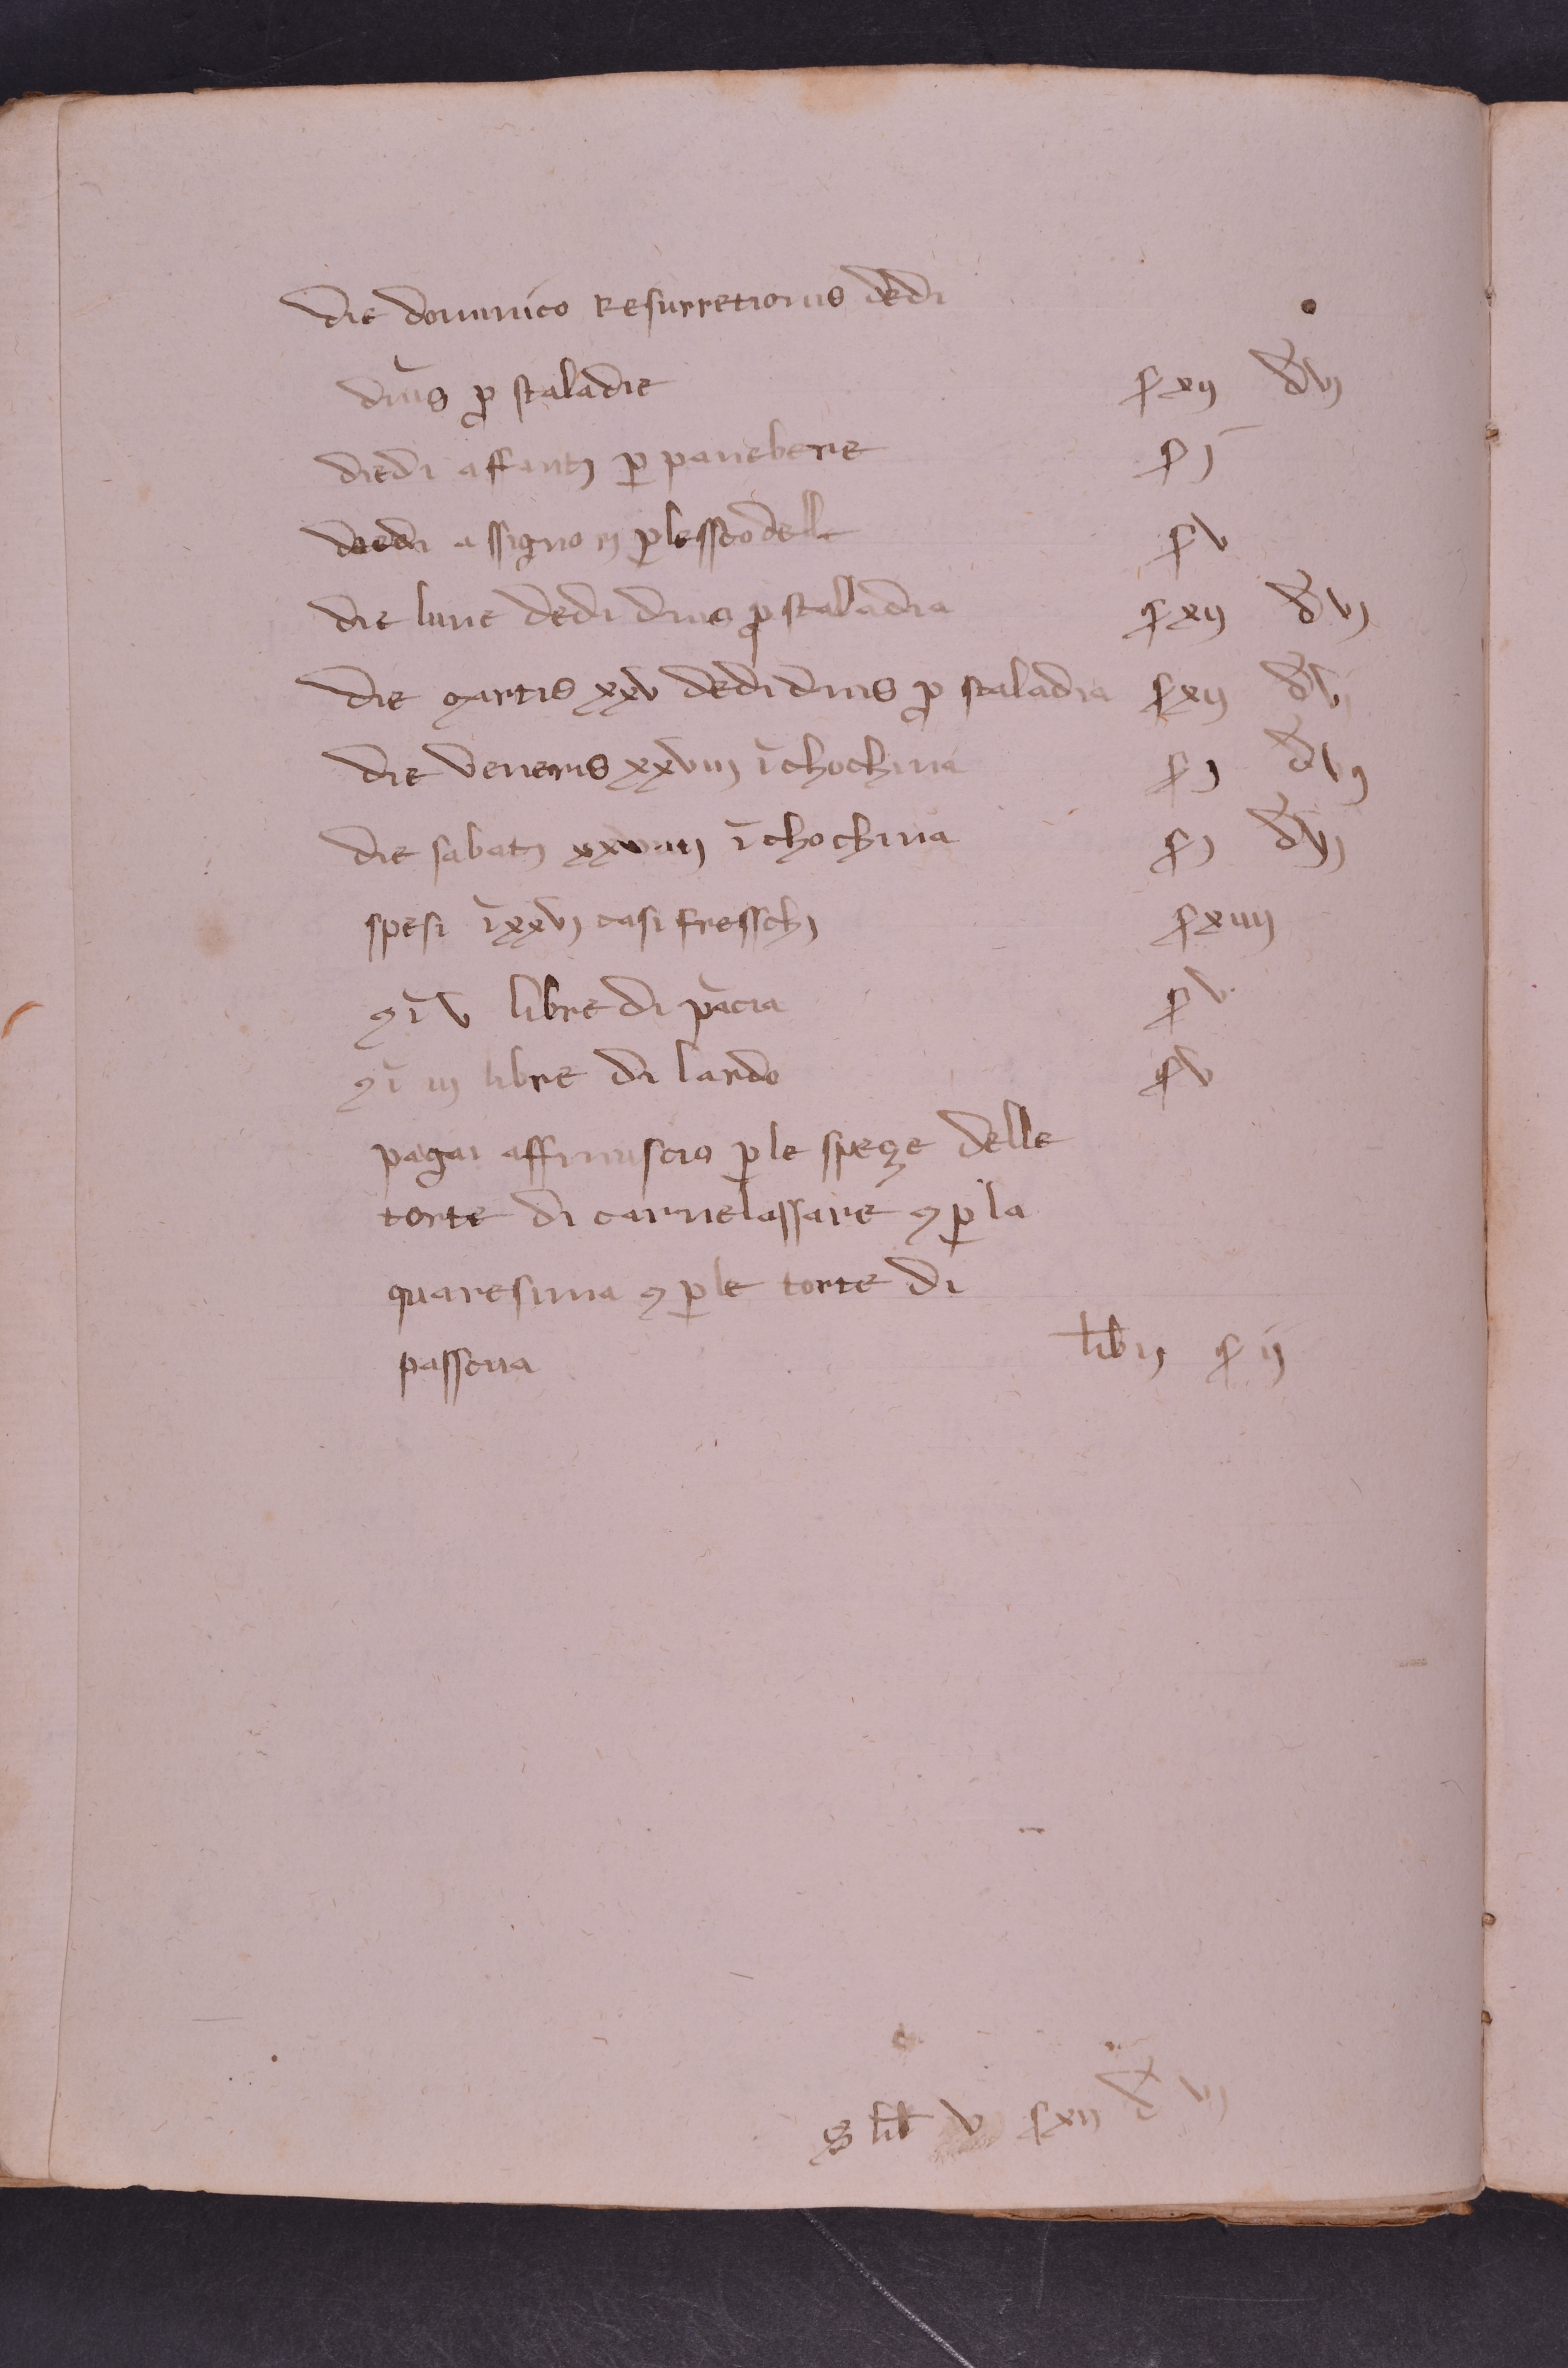 die dominico Resurretionis dedi
dnĩs ꝓ staladie ꝭ xij đ vj
diedi affantj ꝑ panebere ꝭ j
diedi assigno rj ꝑ lesstodelle ꝭ v
die lune dedi dnis ꝓ staladia ꝭ xij đ vj
die martis xxv dedi dnis ꝓ staladia ꝭ xij đ vj
die veneris xxviij ĩ chochina ꝭ j đ vj
die sabatj xxviiij ĩ chochina ꝭ j đ vj
spesi ĩ xxvj casi fresschj ꝭ xiiij
⁊ ĩ v libre di pãcia ꝭ v
⁊ ĩ iij libre di lardo ꝭ v
pagai affrinuscio ꝑ le speze delle
torte di carnelassare ⁊ ꝑ la
quaresima ⁊ ꝑ le torte di
passcua lib ij ꝭ ij
S lib v ꝭ xij đ vj